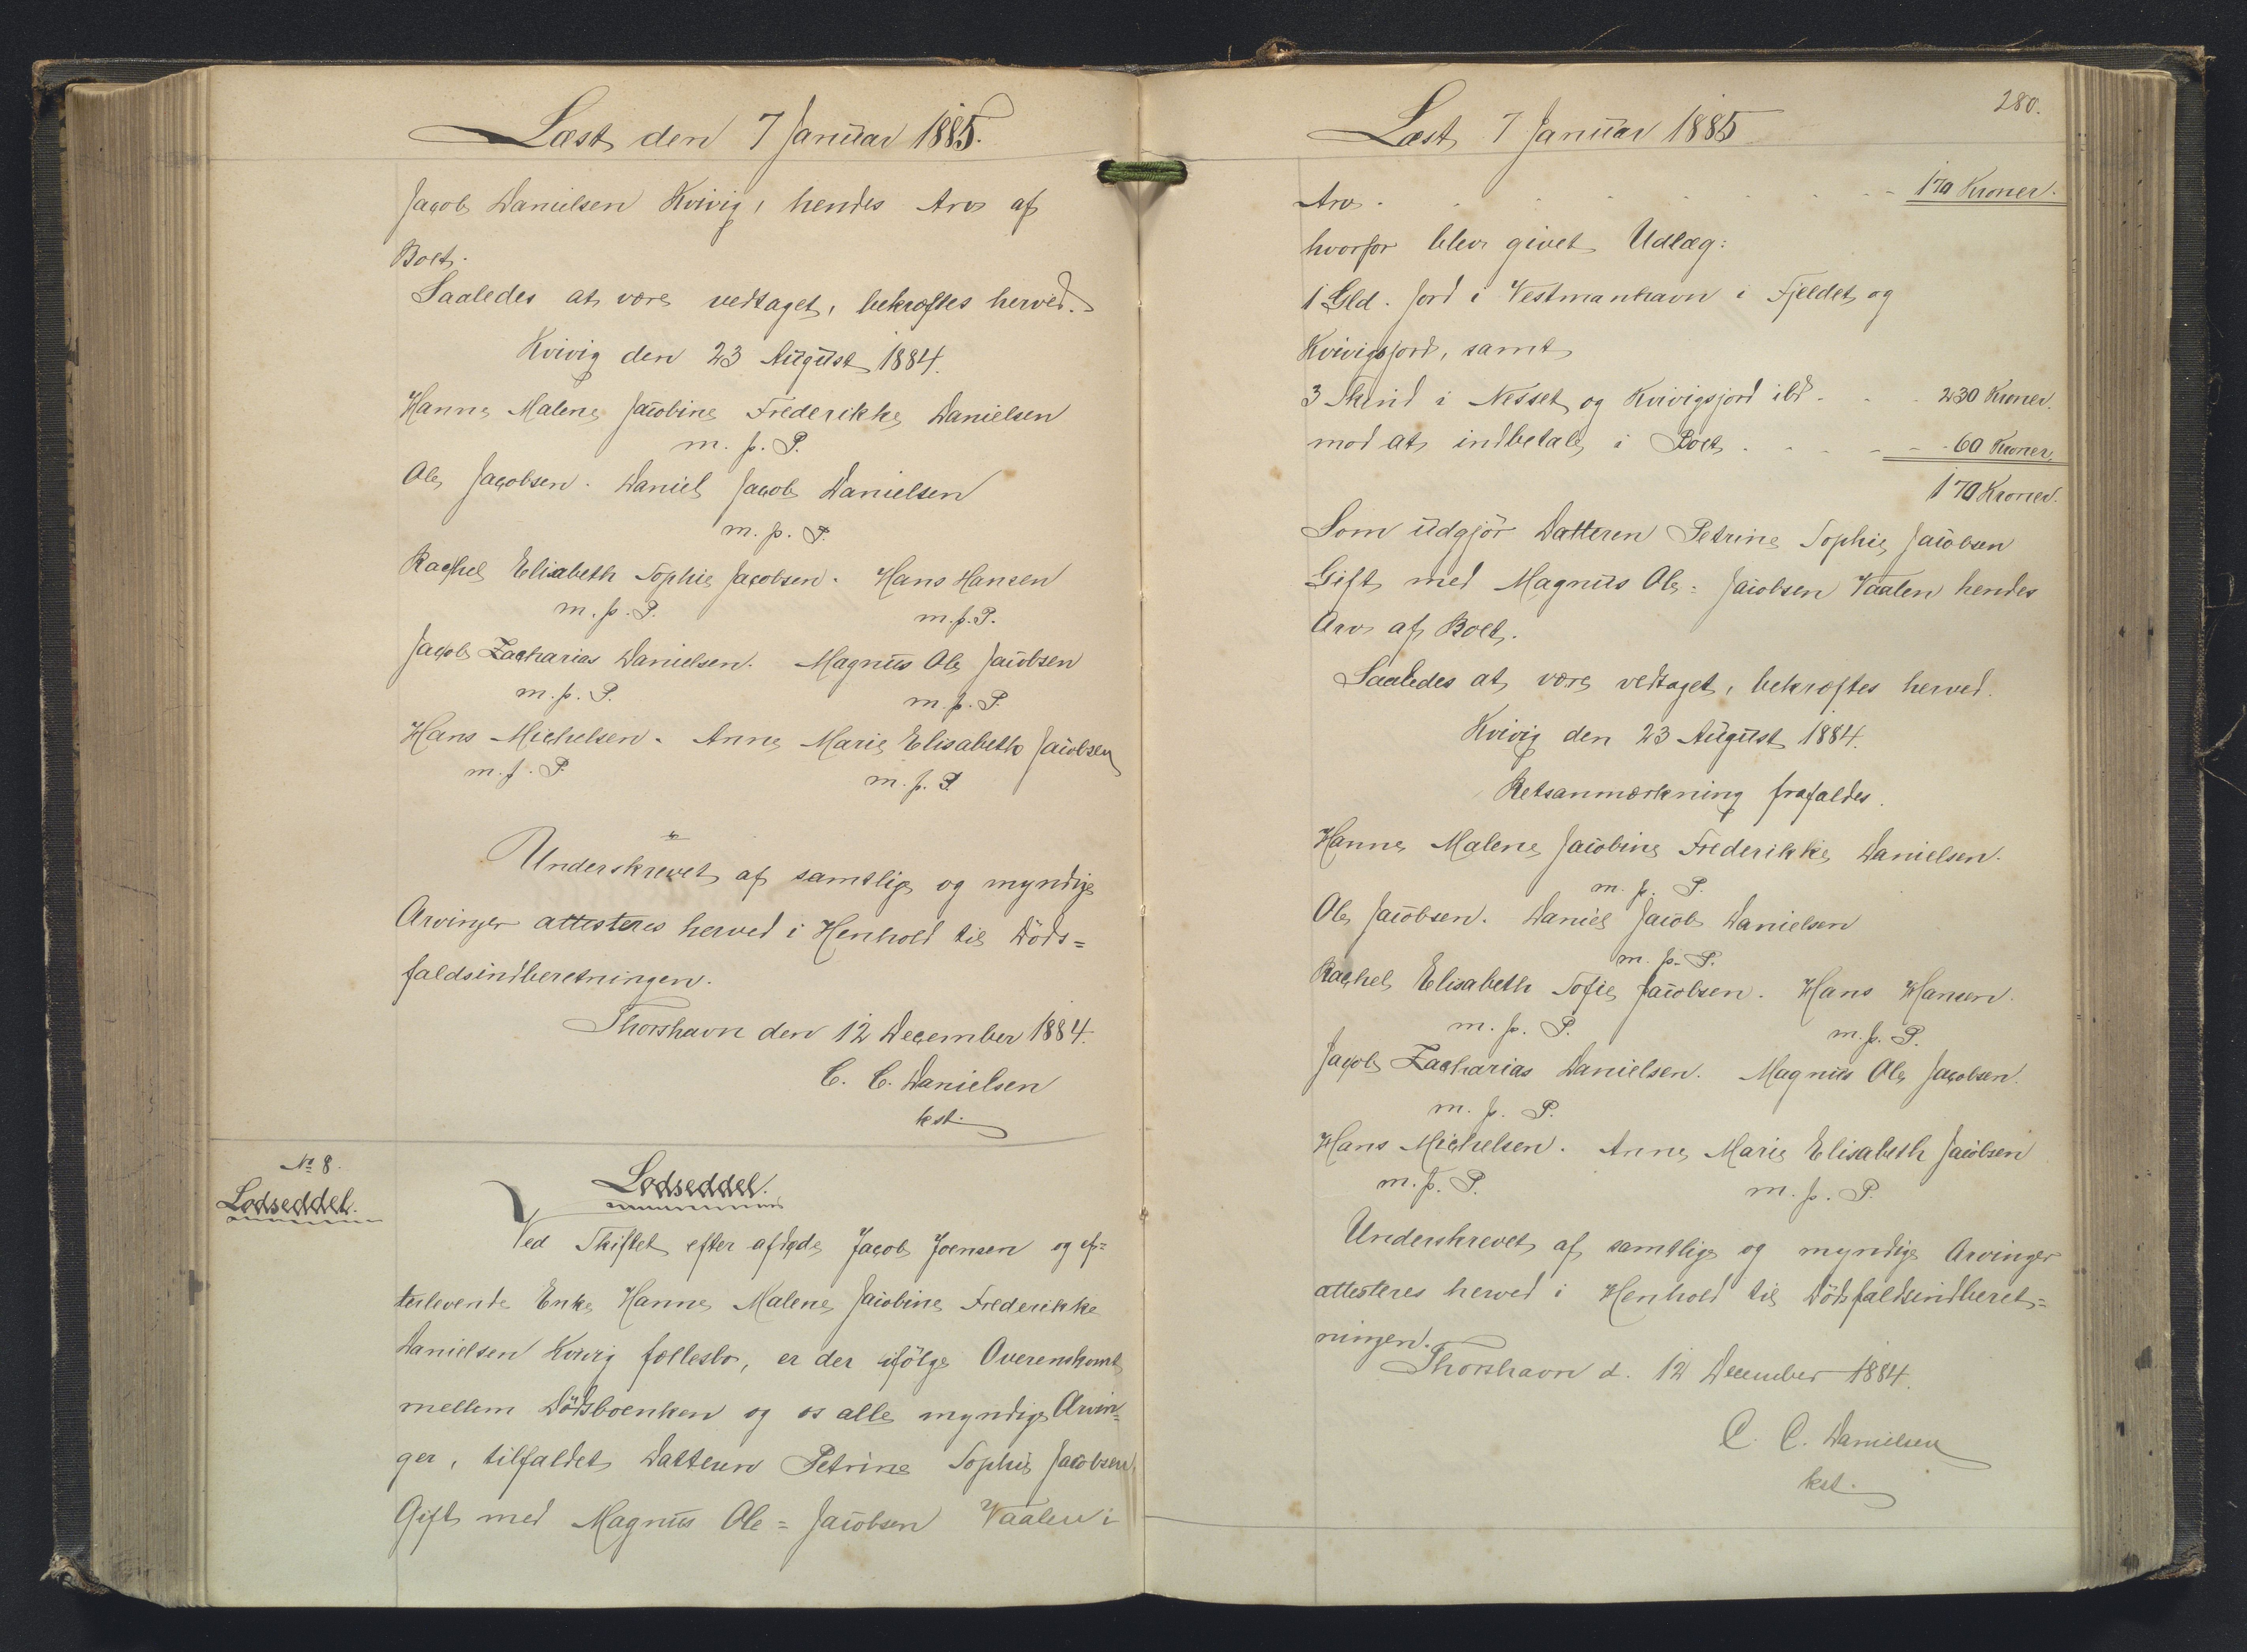 Læst den 7 Januar 1885.
Jacob Danielsen Kvivig, hendes Arv af
Boet.
Saaledes at være vedtaget, bekræftes herved.
Kvivig den 23 August 1884.
Hanne Malene Jacobine Frederikke Danielsen
m. p. P.
Ole Jacobsen. Daniel Jacob Danielsen
m. p. P.
Rachel Elisabeth Sophie Jacobsen. Hans Hansen
m. p. P. m. p. P.
Jacob Zacharias Danielsen. Magnus Ole Jacobsen
m. p. P. m. p. P.
Hans Michelsen. Anne Marie Elisabeth Jacobsen
m. p. P. m. p. P.
Underskrevet af samtlige og myndige
Arvinger attesteres herved i Henhold til Døds=
faldsindberetningen.
Thorshavn den 12 December 1884.
C. C. Danielsen
kst.
No 8.
Lodseddel.
Lodseddel.
Ved Skiftet efter afdøde Jacob Joensen og ef=
terlevende Enke Hanne Malene Jacobine Frederikke
Danielsen Kvivig fællesbo, er der ifölge Overenskomst
mellem Dödsboenken og os alle myndige Arvin=
ger, tilfaldet Datteren Petrine Sophie Jacobsen,
Gift med Magnus Ole = Jacobsen Vaalen i
280.
Læst 7 Januar 1885
Arv . . . . . . . . 170 Kroner.
hvorfor blev givet Udlæg:
1 Gld. Jord i Vestmanhavn i Fjeldet og
Kvivigsjord, samt
3 Skind i Nesset og Kvivigsjord ibd . . . 230 Kroner.
mod at indbetale i Boet . . . . . 60 Kroner.
170 Kroner.
Som udgjör Datteren Petrine Sophie Jacobsen
Gift med Magnus Ole = Jacobsen Vaalen hendes
Arv af Boet.
Saaledes at være vedtaget, bekræftes herved.
Kvivig den 23 August 1884.
Retsanmærkning frafaldes.
Hanne Malene Jacobine Frederikke Danielsen.
m. p. P.
Ole Jacobsen. Daniel Jacob Danielsen
m. p. P.
Rachel Elisabeth Sofie Jacobsen. Hans Hansen.
m. p. P. m. p. P.
Jacob Zacharias Danielsen. Magnus Ole Jacobsen.
m. p. P.
Hans Michelsen. Anne Marie Elisabeth Jacobsen
m. p. P. m. p. P.
Underskrevet af samtlige og myndige Arvinger
attesteres herved i Henhold til Dödsfaldsindberet=
ningen.
Thorshavn d. 12 December 1884.
C. C. Danielsen
kst.